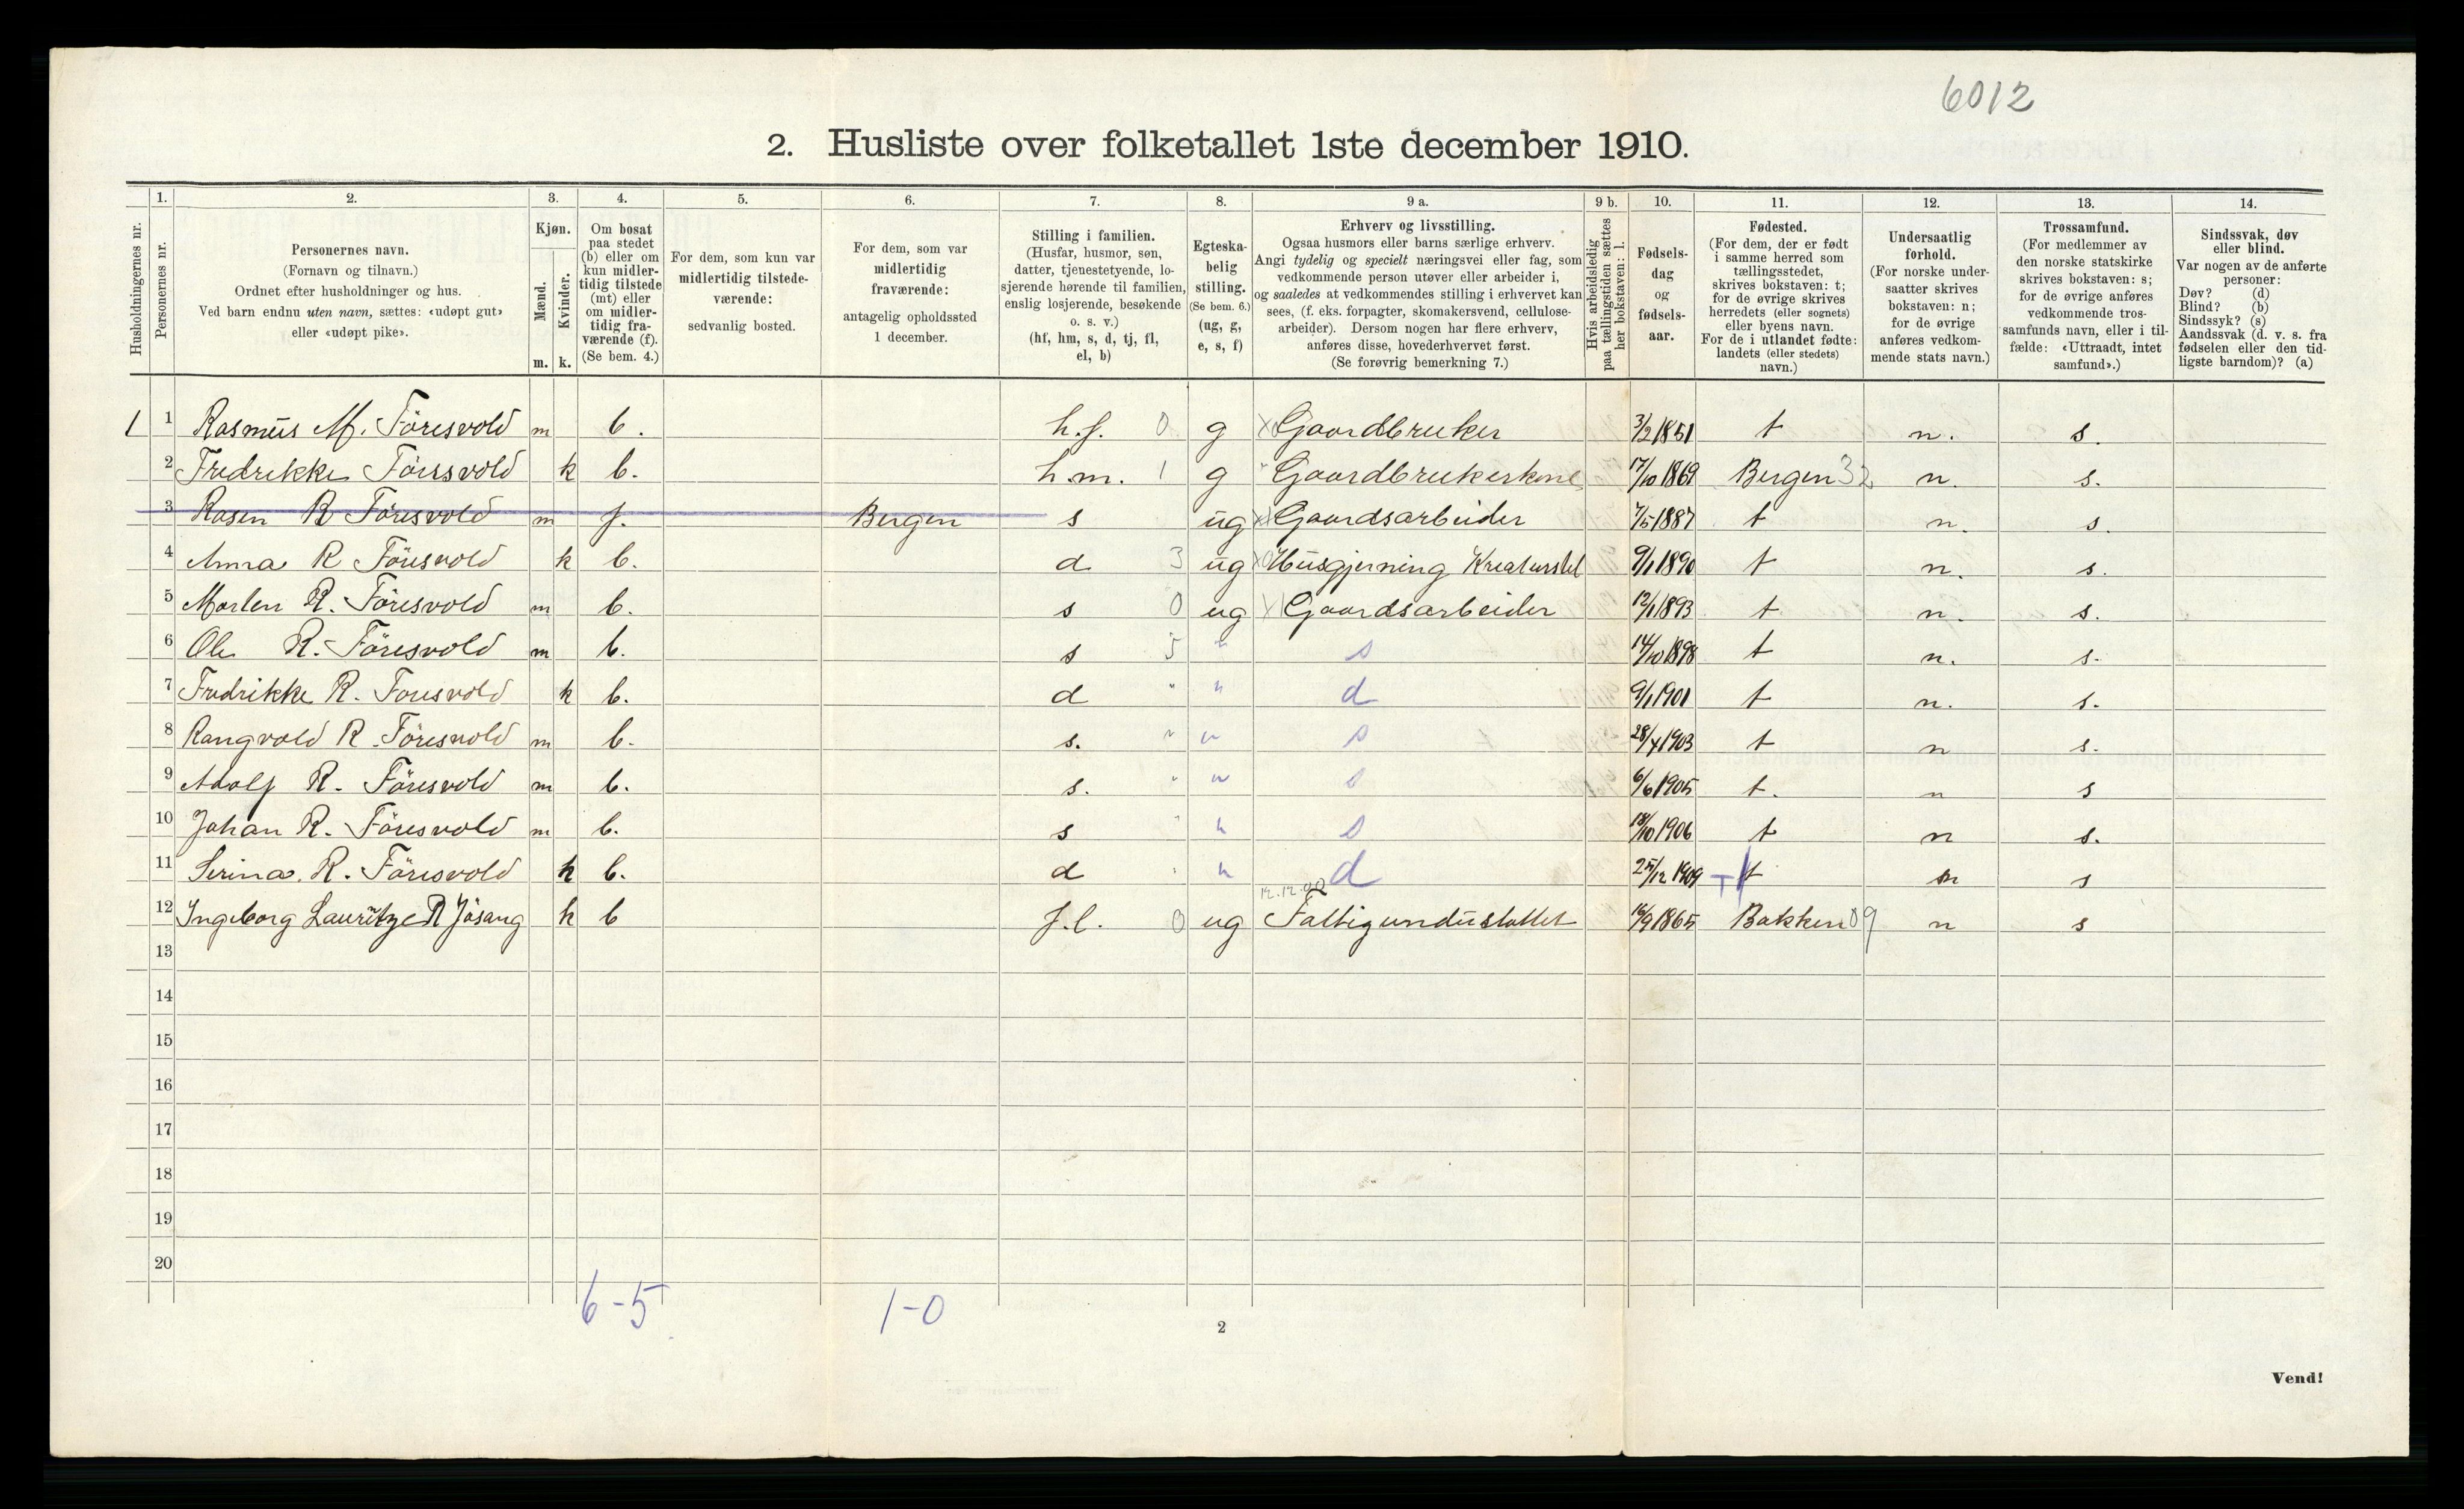 6012
2. Husliste over folketallet 1ste december 1910.
1. 2. 3. 4. 5. 6. 7. 8. 9 a. 9 b. 10. 11. 12. 13. 14.
Husholdningernes nr.
Personernes nr.
Personernes navn.
(Fornavn og tilnavn.)
Ordnet efter husholdninger og hus.
Ved barn endnu uten navn, sættes: «udøpt gut»
eller «udøpt pike».
Kjøn.
Mænd.
Kvinder.
m. k.
Om bosat
paa stedet
(b) eller om
kun midler-
tidig tilstede
(mt) eller
om midler-
tidig fra-
værende (f).
(Se bem. 4.)
For dem, som kun var
midlertidig tilstede-
værende:
sedvanlig bosted.
For dem, som var
midlertidig
fraværende:
antagelig opholdssted
1 december.
Stilling i familien.
(Husfar, husmor, søn,
datter, tjenestetyende, lo-
sjerende hørende til familien,
enslig losjerende, besøkende
o. s. v.)
(hf, hm, s, d, tj, fl,
el, b)
Egteska-
belig
stilling.
(Se bem. 6.)
(ug, g,
e, s, f)
Erhverv og livsstilling.
Ogsaa husmors eller barns særlige erhverv.
Angi tydelig og specielt næringsvei eller fag, som
vedkommende person utøver eller arbeider i,
og saaledes at vedkommendes stilling i erhvervet kan
sees, (f. eks. forpagter, skomakersvend, cellulose-
arbeider). Dersom nogen har flere erhverv,
anføres disse, hovederhvervet først.
(Se forøvrig bemerkning 7.)
Hvis arbeidsledig
paa tællingstiden sættes
her bokstaven: l.
Fødsels-
dag
og
fødsels-
aar.
Fødested.
(For dem, der er født
i samme herred som
tællingsstedet,
skrives bokstaven: t;
for de øvrige skrives
herredets (eller sognets)
eller byens navn.
For de i utlandet fødte:
landets (eller stedets)
navn.)
Undersaatlig
forhold.
(For norske under-
saatter skrives
bokstaven: n;
for de øvrige
anføres vedkom-
mende stats navn.)
Trossamfund.
(For medlemmer av
den norske statskirke
skrives bokstaven: s;
for de øvrige anføres
vedkommende tros-
samfunds navn, eller i til-
fælde: «Uttraadt, intet
samfund».)
Sindssvak, døv
eller blind.
Var nogen av de anførte
personer:
Døv? (d)
Blind? (b)
Sindssyk? (s)
Aandssvak (d. v. s. fra
fødselen eller den tid-
ligste barndom)? (a)
1 1 Rasmus M. Föresvold m b. h.f. 0 g X Gaardbruker 3/2 1851 t n. s.
2 Fredrikke Föresvold k b. h.m. 1 g " Gaardbrukerkone 17/10 1869 Bergen 32 n. s.
3 Rasen R Föresvold m f. Bergen s ug X Gaardsarbeider 7/5 1887 t n. s.
4 Anna R Föresvold k b. d 3 ug X Husgjerning Kreaturstel 9/1 1890 t n. s.
5 Morten R. Föresvold m b. s 0 ug X Gaardsarbeider 12/1 1893 t n. s.
6 Ole R. Föresvold m b. s 5 " s 14/10 1898 t n. s.
7 Fredrikke R. Foresvold k b. d " " d 9/1 1901 t n. s.
8 Rangvold R. Föresvold m b. s. " " s 28/4 1903 t n s.
9 Adolf R. Föresvold m b. s. " " s 6/6 1905 t. n s
10 Johan R. Föresvold m b. s " " s 18/10 1906 t n s.
11 Serina. R. Föresvold k b. d " " d 25/12 1909 T t n s
12.12.02
12 Ingeborg Lauritze R Jösang k b f.l. 0 ug Fattigunderstøttet 16/9 1865 Bakken 09 n s
13
14
15
16
17
18
19
20
6-5 1-0
2
Vend!